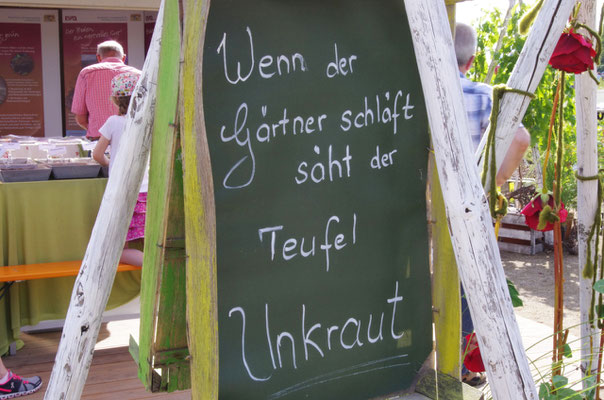 Wenn der
Gärtner schläft
säht der
Teufel
Unkraut